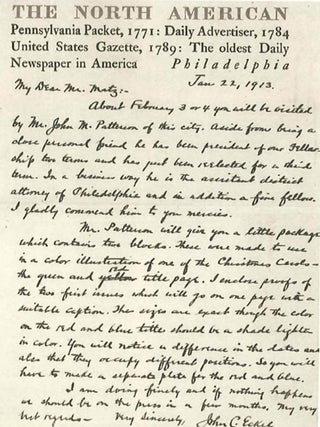 THE NORTH AMERICAN
Pennsylvania Packet, 1771: Daily Advertiser, 1784
United States Gazette, 1789: The oldest Daily
Newspaper in America Philadelphia
Jan 22, 1913.
My Dear Mr. Matz:-
About February 3 or 4 you will be visited
by Mr. John M. Patterson of this city. Aside from being a
close personal friend he has been president of our Fellow-
ship two terms and has just been reelected for a third
term. In a business way he is the assistant district
attorney of Philadelphia and in addition a fine fellow.
I gladly commend him to your mercies.
Mr. Patterson will give you a little package
which contains two blocks. These were made to use
in a color illustration of one of the Christmas Carols -
the green and red title page. I enclose proofs of
the two first issues which will go on one page with a
suitable caption. The sizes are exact though the color
on the red and blue title should be a shade lighter
in color. You will notice a difference in the dates and
also that they occupy different positions. So you will
have to make a separate plate for the red and blue.
I am doing finely and if nothing happens
we should be on the press in a few months. My very
best regards - Very Sincerely, John C. Eckel